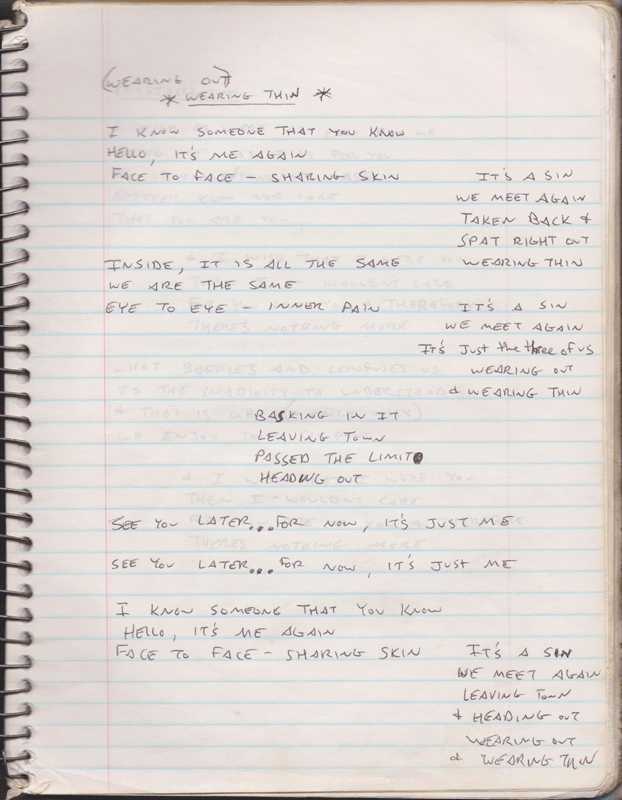 (WEARING OUT)
* WEARING THIN *
I KNOW SOMEONE THAT YOU KNOW
HELLO, IT'S ME AGAIN
FACE TO FACE - SHARING SKIN
IT'S A SIN
WE MEET AGAIN
TAKEN BACK &
SPAT RIGHT OUT
WEARING THIN
INSIDE, IT IS ALL THE SAME
WE ARE THE SAME
EYE TO EYE - INNER PAIN
IT'S A SIN
WE MEET AGAIN
IT'S JUST the three of us
WEARING OUT
& WEARING THIN
BASKING IN IT
LEAVING TOWN
PASSED THE LIMIT
HEADING OUT
SEE YOU LATER... FOR NOW, IT'S JUST ME
SEE YOU LATER... FOR NOW, IT'S JUST ME
I KNOW SOMEONE THAT YOU KNOW
HELLO, IT'S ME AGAIN
FACE TO FACE - SHARING SKIN
IT'S A SIN
WE MEET AGAIN
LEAVING TOWN
& HEADING OUT
WEARING OUT
& WEARING THIN